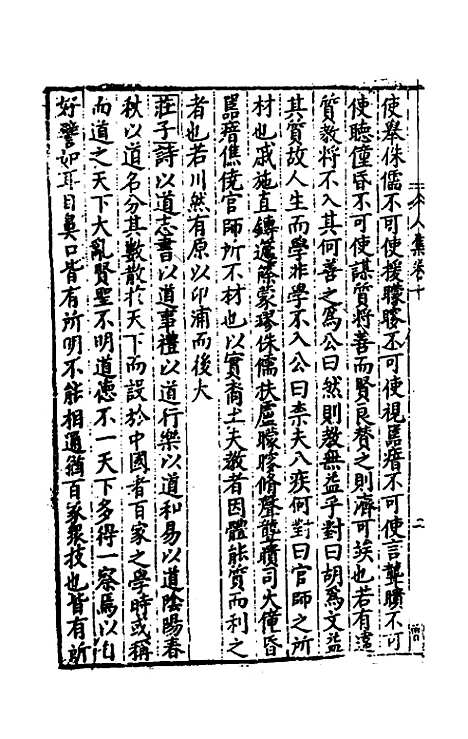 使舉侏儒不可使援矇瞍不可使視嚚瘖不可使言聾聵不可
使聽僮昏不可使謀質將善而賢良贊之則濟可竢也若有違
質教將不入其何善之爲公曰然則教無益乎對曰胡爲文益
其質故人生而學非學不入公曰柰夫八疾何對曰官師之所
材也戚施直鎛蘧蒢蒙璆侏儒扶盧矇瞍脩聲聾聵司火僮昏
嚚瘖僬僥官師所不材也以實裔土夫教者因體能質而利之
者也若川然有原以卬浦而後大
莊子詩以道志書以道事禮以道行樂以道和易以道陰陽春
秋以道名分其數散於天下而設於中國者百家之學時或稱
而道之天下大亂賢聖不明道德不一天下多得一察焉以自
好譬如耳目鼻口皆有所明不能相通猶百家衆技也皆有所
人集卷十
二